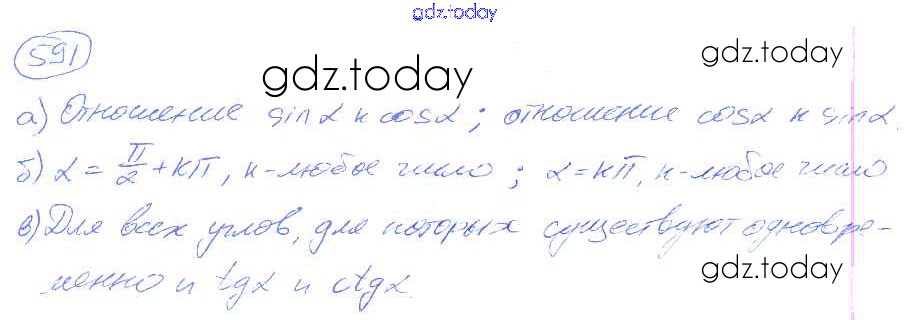 gdz.today
591
gdz.today
gdz.today
а) Отношение sinα к cosα; отношение cosα к sinα.
б) α = π/2 + кπ, к-любое число; α = кπ, к-любое число
в) Для всех углов, для которых существуют одновре-
менно и tgα и ctgα.
gdz.today